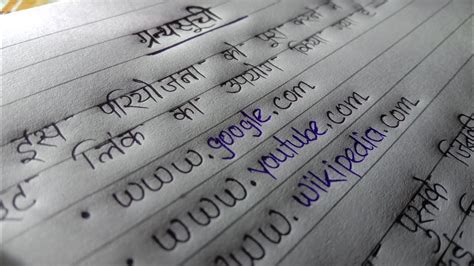 ग्रन्थसूची
इस परियोजना को पूरा करने
लिंक का उपयोग किया
• www.google.com
• www.youtube.com
• www.wikipedia.com
पुस्तके